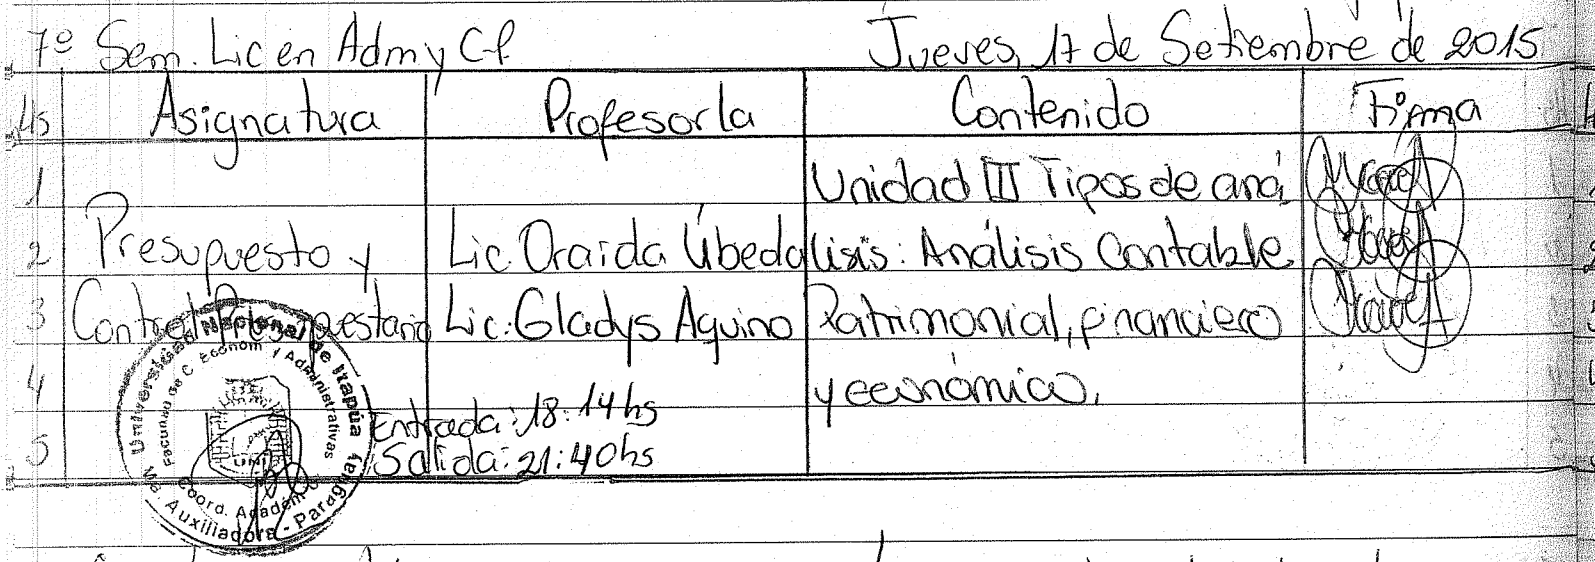 7º Sem. Lic en Adm y C.P. Jueves, 17 de Setiembre de 2015
Hs Asignatura Profesor/a Contenido Firma
1 Unidad III Tipos de aná
2 Presupuesto y Lic. Oraida Úbeda lisis: Análisis Contable
3 Control Presupuestario Lic: Gladys Aquino Patrimonial, financiero
4 y económico.
Entrada: 18:14 hs
5 Salida: 21:40 hs
Universidad Nacional de Itapúa
Facultad de C. Econom. y Administrativas
UNI
Coord. Académ
Mª Auxiliadora - Paraguay